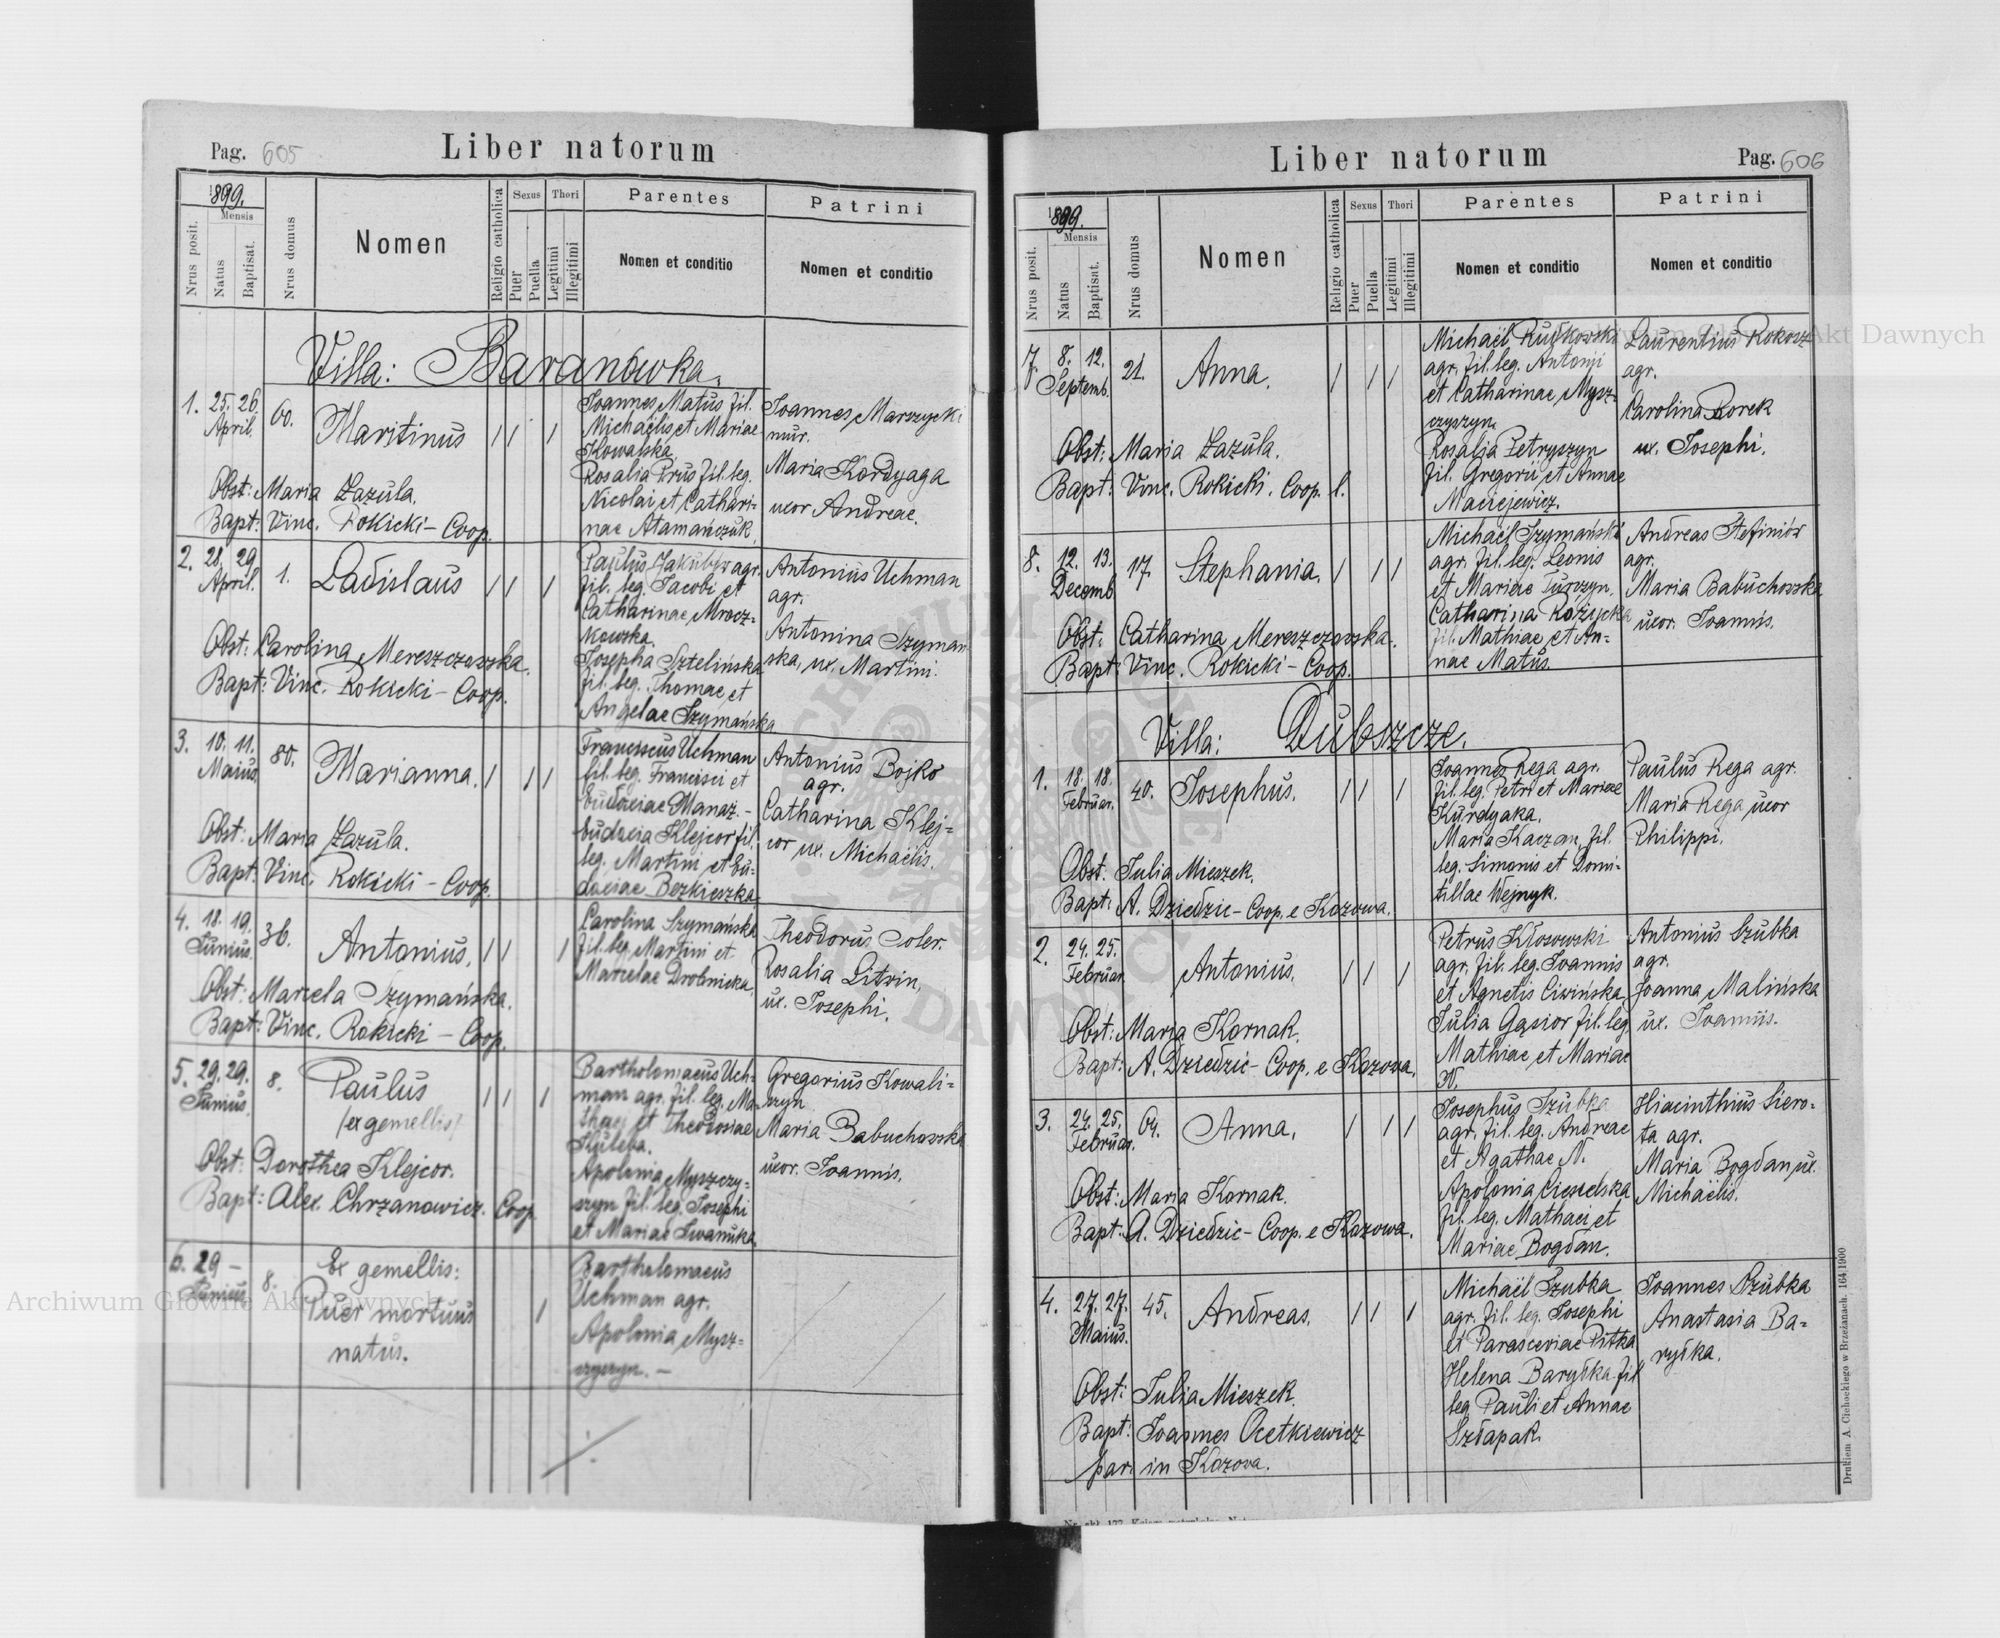 Pag. 605
Liber natorum
1899.
Nrus posit.
Mensis
Natus
Baptisat.
Nrus domus
Nomen
Religio catholica
Sexus
Puer
Puella
Thori
Legitimi
Illegitimi
Parentes
Nomen et conditio
Patrini
Nomen et conditio
Villa: Baranówka.
1. 25. 26. April. 60. Martinus
Joannes Matus fil.
Michaelis et Mariae
Kowalska.
Rosalia Prus fil. leg.
Nicolai et Cathari-
nae Atamańczuk.
Joannes Marszycki
mur.
Maria Kordyaga
uxor Andreae.
Obst: Maria Łazula.
Bapt: Vinc. Rokicki - Coop.
2. 28. 29. April. 1. Ladislaus
Paulus Jakubów agr.
fil. leg. Jacobi et
Catharinae Mrocz-
kowska.
Josepha Sztelińska
fil. leg. Thomae et
Angelae Szymańska
Antonius Uchman
agr.
Antonina Szymań
ska, ux. Martini.
Obst: Carolina Mereszczowska.
Bapt: Vinc. Rokicki - Coop.
3. 10. 11. Maius 80. Marianna.
Franciscus Uchman
fil. leg. Francisci et
Eudoxiae Manaz. -
Eudoxia Klejcor fil.
leg. Martini et Eu-
doxiae Bezkieszka
Antonius Bojko
agr.
Catharina Klej=
cor ux. Michaëlis.
Obst: Maria Łazula.
Bapt: Vinc. Rokicki - Coop.
4. 18. 19. Junius. 36. Antonius.
Carolina Szymańska
fil. leg. Martini et
Marcelae Drobnicka.
Theodorus Coler.
Rosalia Litvin,
ux. Josephi.
Obst: Marcela Szymańska.
Bapt: Vinc. Rokicki - Coop.
5. 29. 29. Junius. 8. Paulus
/ex gemellis/
Bartholomaeus Uch-
man agr. fil. leg. Ma-
thaei et Theodosiae
Kuleba.
Apolonia Myszczy=
szyn fil. leg. Josephi
et Mariae Iwanuka.
Gregorius Kowali=
szyn
Maria Babuchowska
uxor. Joannis.
Obst: Dorothea Klejcor.
Bapt: Alex. Chrzanowicz. Coop.
6. 29 - Junius 8. Ex gemellis:
Puer mortuus
natus.
Bartholomaeus
Uchman agr.
Apolonia Mysz=
czyszyn. -
Liber natorum
Pag. 606
1899.
Nrus posit.
Mensis
Natus
Baptisat.
Nrus domus
Nomen
Religio catholica
Sexus
Puer
Puella
Thori
Legitimi
Illegitimi
Parentes
Nomen et conditio
Patrini
Nomen et conditio
7. 8. 12. Septemb. 21. Anna.
Michaël Rutkowski
agr. fil. leg. Antonii
et Catharinae Mysz=
czyszyn.
Rosalia Petryszyn
fil. Gregorii et Annae
Maciejewicz.
Laurentius Rokosz
agr.
Carolina Borek
ux. Josephi.
Obst: Maria Łazula.
Bapt: Vinc. Rokicki. Coop. l.
8. 12. 13. Decemb 17. Stephania.
Michaël Szymański
agr. fil. leg. Leonis
et Mariae Turczyn.
Catharina Różycka
fil. Mathiae et An=
nae Matus.
Andreas Stefiniów
agr.
Maria Babuchowska
uxor. Joannis.
Obst: Catharina Mereszczowska.
Bapt: Vinc. Rokicki - Coop.
Villa: Dubszcze.
1. 18. 18. Februar. 40. Josephus.
Joannes Rega agr.
fil. leg. Petri et Mariae
Kurdyaka.
Maria Kaczan, fil.
leg. Simonis et Domi-
tillae Wejnyk.
Paulus Rega agr.
Maria Rega uxor
Philippi.
Obst: Julia Mieszek.
Bapt: A. Dziedzic - Coop. e Kozowa.
2. 24. 25. Februar. Antonius.
Petrus Kłosowski
agr. fil. leg. Joannis
et Agnetis Ciwińska
Julia Gąsior fil. leg.
Mathiae et Mariae
N.
Antonius Szubka
agr.
Joanna Malińska
ux. Joannis.
Obst: Maria Kornak.
Bapt: A. Dziedzic - Coop. e Kozova.
3. 24. 25. Februar. 64. Anna.
Josephus Szubka
agr. fil. leg. Andreae
et Agathae N.
Apolonia Ciesielska
fil. leg. Mathaei et
Mariae Bogdan.
Hiacinthius Siero-
ta agr.
Maria Bogdan, ux.
Michaëlis.
Obst: Maria Kornak.
Bapt: A. Dziedzic - Coop. e Kozowa.
4. 27. 27. Maius. 45. Andreas.
Michaël Szubka
agr. fil. leg. Josephi
et Parasceviae Pitka
Helena Baryłka fil
leg Pauli et Annae
Szłapak
Joannes Szubka
Anastasia Ba=
ryłka.
Obst: Julia Mieszek
Bapt: Joannes Ocetkiewicz
par. in Kozova.
Drukiem A. Ciehockiego w Brzeżanach. 164 1900
Archiwum Główne Akt Dawnych
Archiwum Główne Akt Dawnych